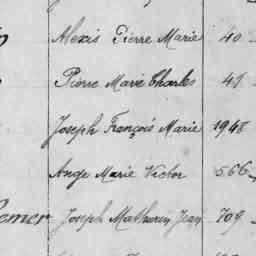 Alexis Pierre Marie 40
Pierre Marie Charles 41
Joseph François Marie 1948
Ange Marie Victor 566
Joseph Mathurin Jean 709